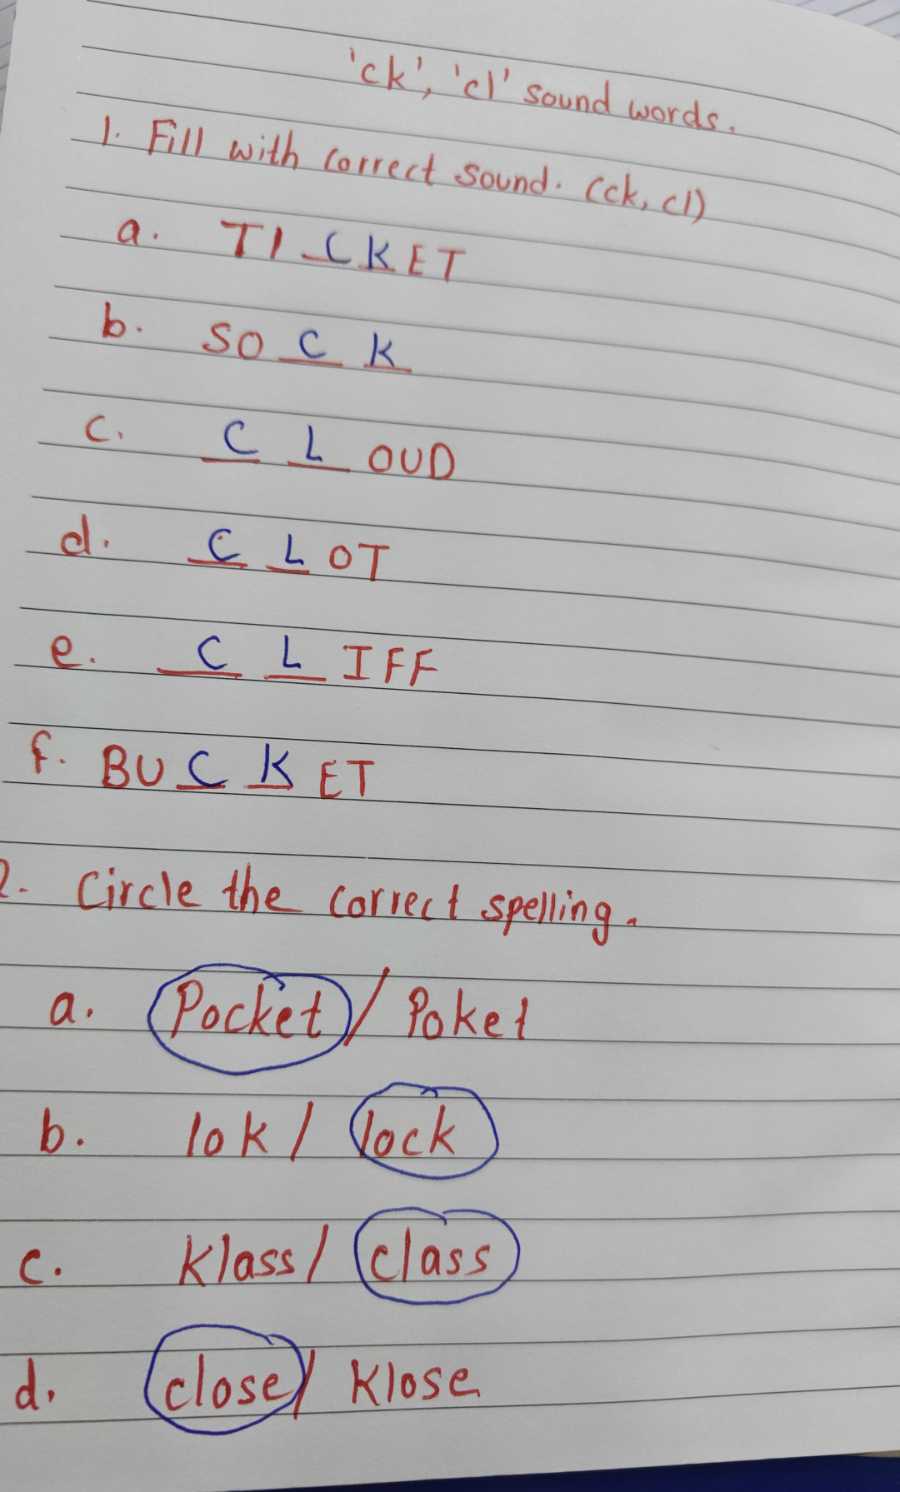 'ck', 'cl' sound words.
1. Fill with correct sound. (ck, cl)
a. TICKET
b. SOCK
c. CLOUD
d. CLOT
e. CLIFF
f. BUCKET
2. Circle the correct spelling.
a. Pocket / Poket
b. lok / lock
c. Klass / class
d. close / Klose